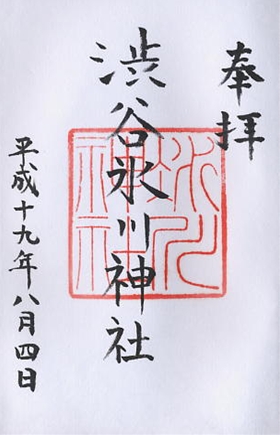 奉拝
渋谷氷川神社
平成十九年八月四日
氷川
神社